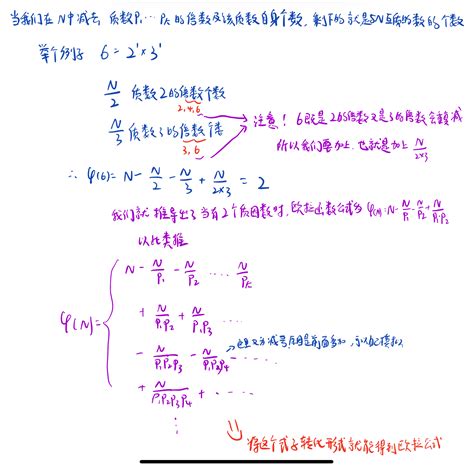 当我们在N中减去 质数P₁…Pₖ的倍数及该质数自身个数，剩下的就是与N互质的数的个数
举个例子 6=2¹×3¹
N/2 质数2的倍数个数
2,4,6
N/3 质数3的倍数个数
3,6
注意！6既是2的倍数又是3的倍数会多减
所以我们要加上，也就是加上 N/(2×3)
∴ φ(6)=N-N/2-N/3+N/(2×3)=2
我们就推导出了当有2个质因数时，欧拉函数公式为 φ(N)=N-N/P₁-N/P₂+N/(P₁P₂)
以此类推
φ(N)={
N-N/P₁-N/P₂ …… N/Pₖ
+N/(P₁P₂)+N/(P₁P₃) ……
-N/(P₁P₂P₃)-N/(P₁P₂P₄) ……
→这里又为减号原因是前面多加，所以
+N/(P₁P₂P₃P₄)+ ……
⋮
将这个式子转化形式就能得到欧拉公式